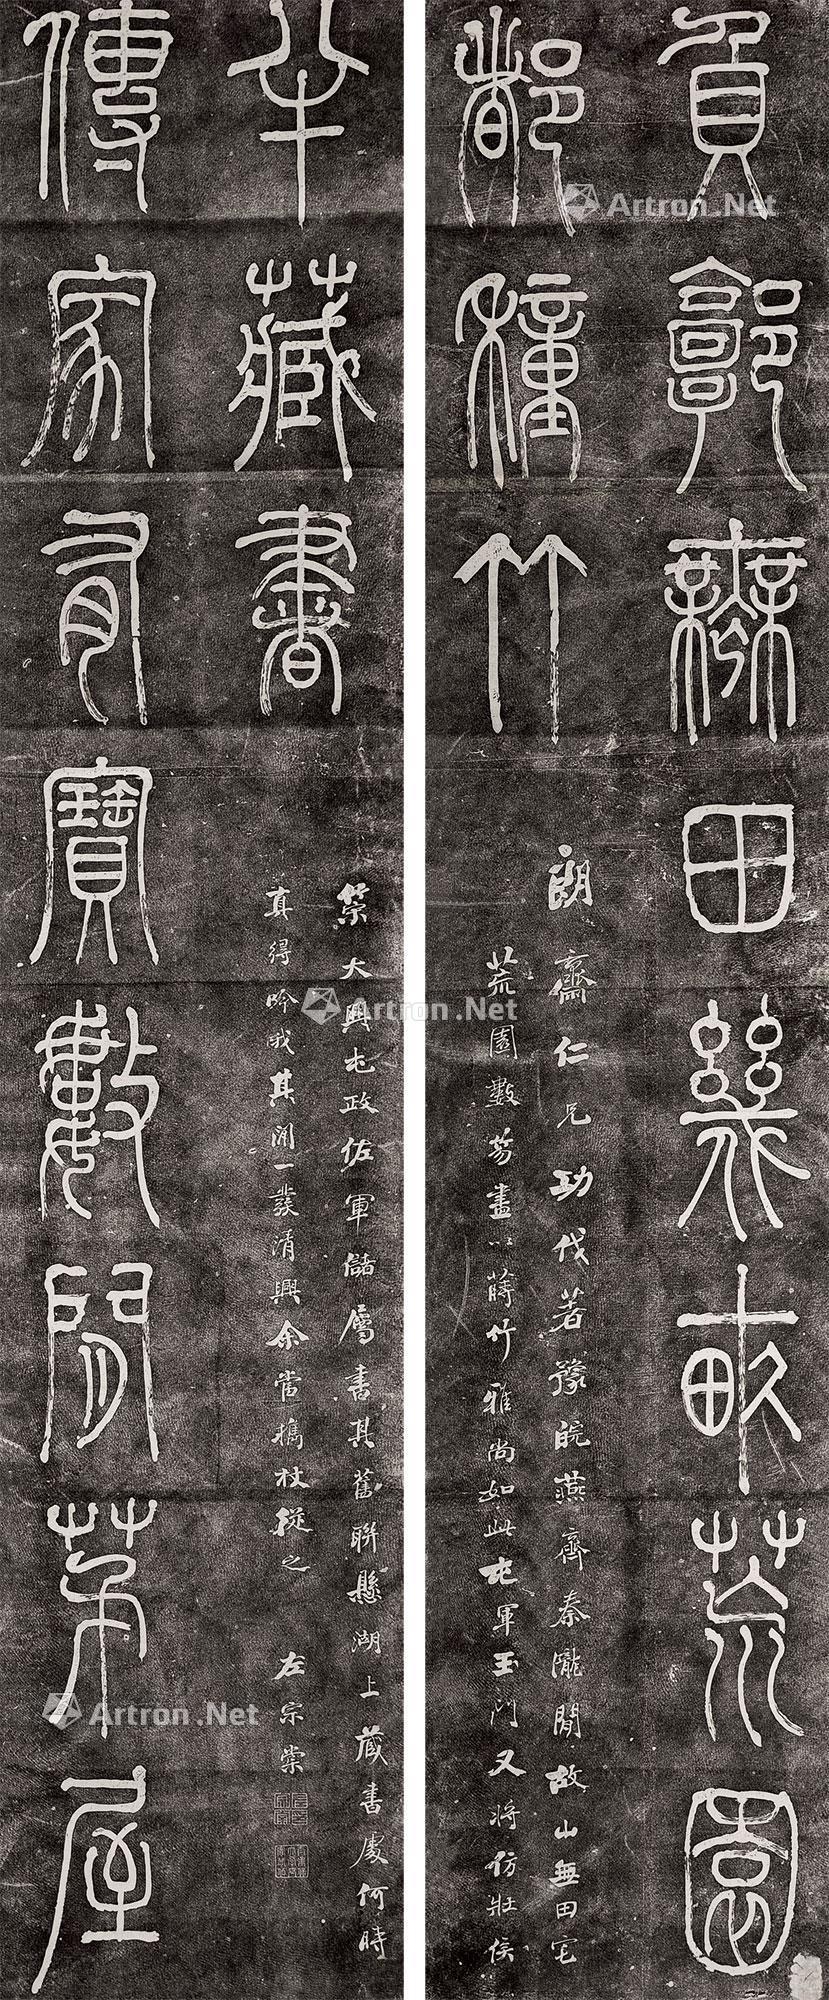 負郭無田幾畝荒園
都種竹
朗齋仁兄功伐著豫皖燕齊秦隴閒故山無田宅
荒園數笏畫以蒔竹雅尚如此屯軍玉門又將仿壯侯
傳家有寶數間茅屋
半藏書
策大興屯政佐軍儲屬書其舊聯懸湖上藏書處何時
真得吟哦其閒一發清興余當攜杖從之
左宗棠
Artron.Net
Artron.Net
Artron.Net